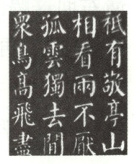 衆鳥高飛盡
孤雲獨去閒
相看兩不厭
祗有敬亭山